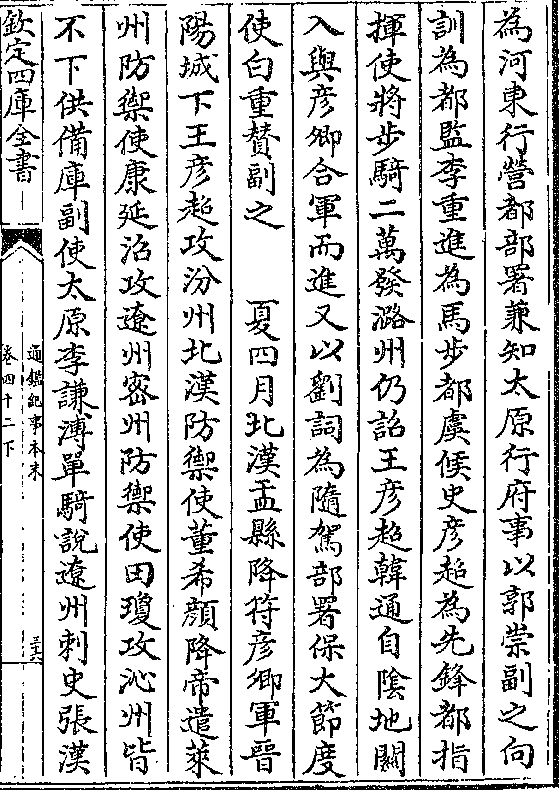 為河東行營都部署兼知太原行府事以郭崇副之向
訓為都監李重進為馬步都虞候史彦超為先鋒都指
揮使將步騎二萬發潞州仍詔王彦超韓通自隂地關
入與彦卿合軍而進又以劉詞為隨駕部署保大節度
使白重賛副之　夏四月北漢盂縣降符彦卿軍晉
陽城下王彦超攻汾州北漢防禦使董希顔降帝遣萊
州防禦使康延沼攻遼州密州防禦使田瓊攻沁州皆
不下供備庫副使太原李謙溥單騎説遼州刺史張漢
欽定四庫全書
通鑑紀事本末
卷四十二下
三十六